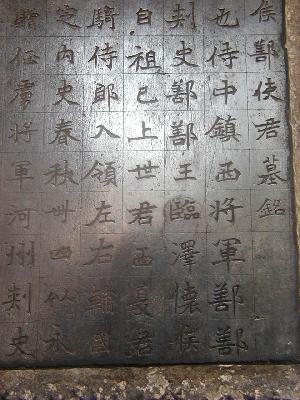 侯鄯使君墓銘
也侍中鎮西將軍鄯鄯
刺史鄯鄯王臨澤懷侯
自祖已上世君西夏君
騎侍郎入領左右輔國
定內史春秋卌四以永
贈征虜將軍河州刺史